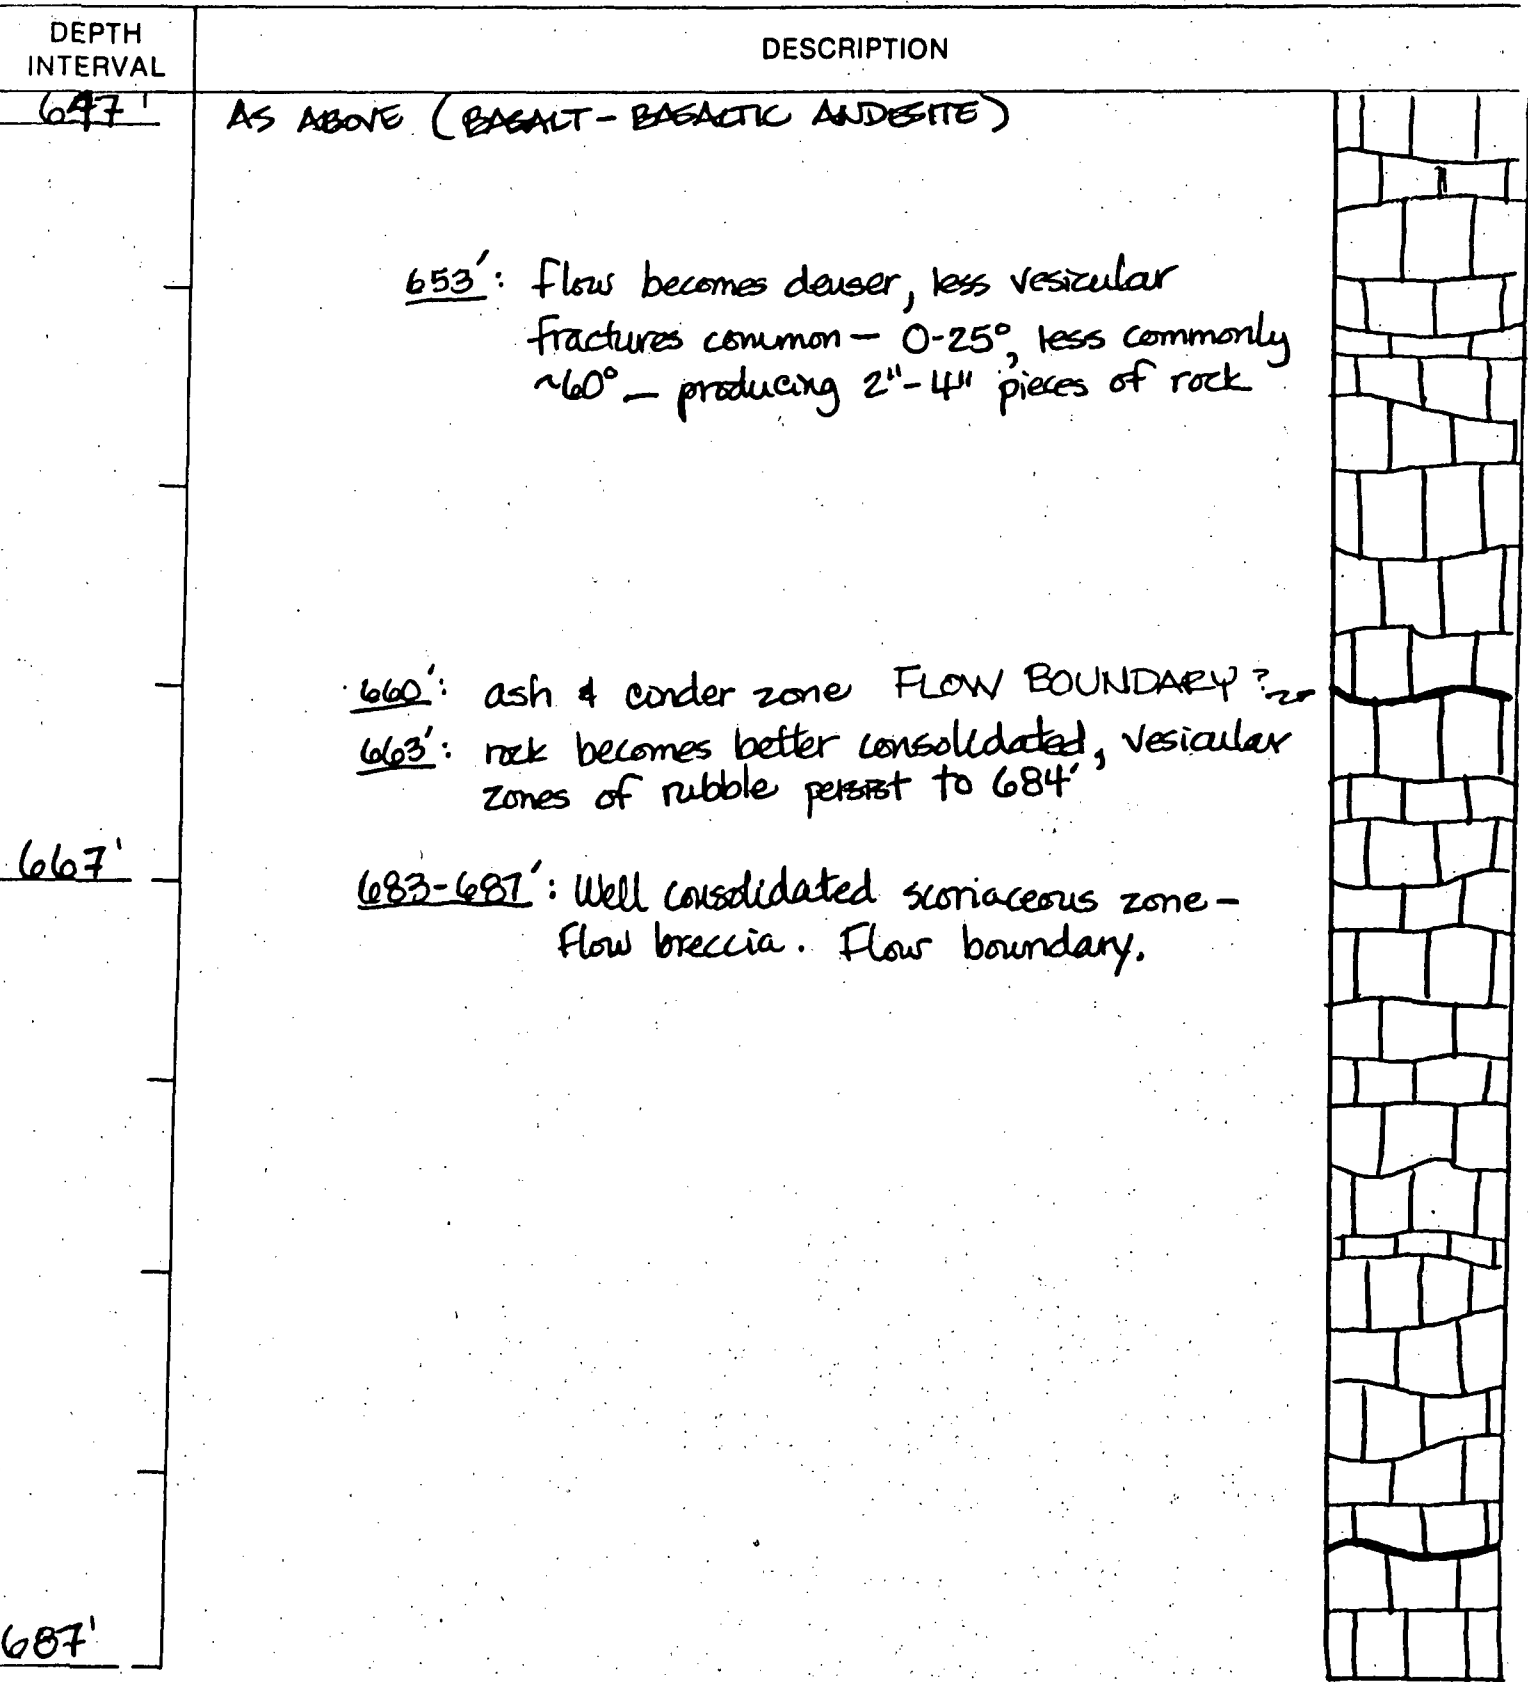 DEPTH
INTERVAL
DESCRIPTION
647'
AS ABOVE (BASALT - BASALTIC ANDESITE)
653': flow becomes denser, less vesicular
fractures common — 0-25°, less commonly
~60° — producing 2"-4" pieces of rock
660': ash & cinder zone FLOW BOUNDARY?
663': rock becomes better consolidated, vesicular
zones of rubble persist to 684'
667'
683-687': Well consolidated scoriaceous zone -
Flow breccia. Flow boundary.
687'